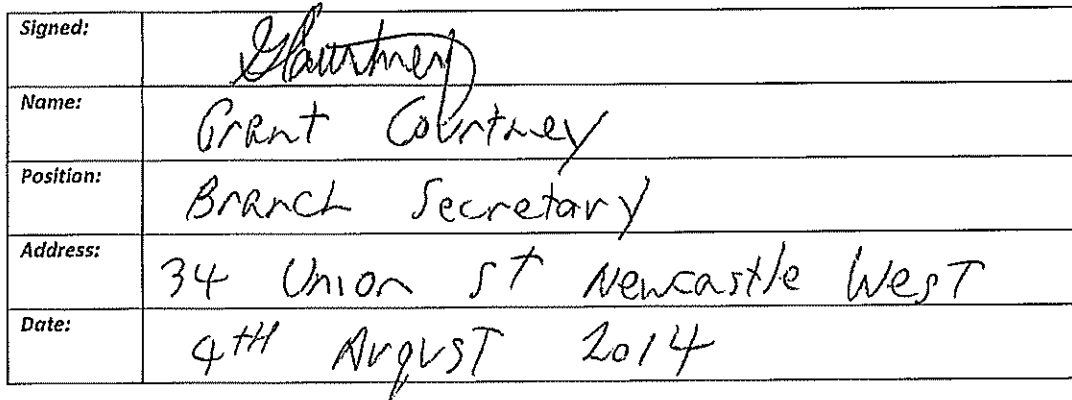 Signed: GCourtney
Name: Grant Courtney
Position: Branch Secretary
Address: 34 Union St Newcastle West
Date: 4TH August 2014